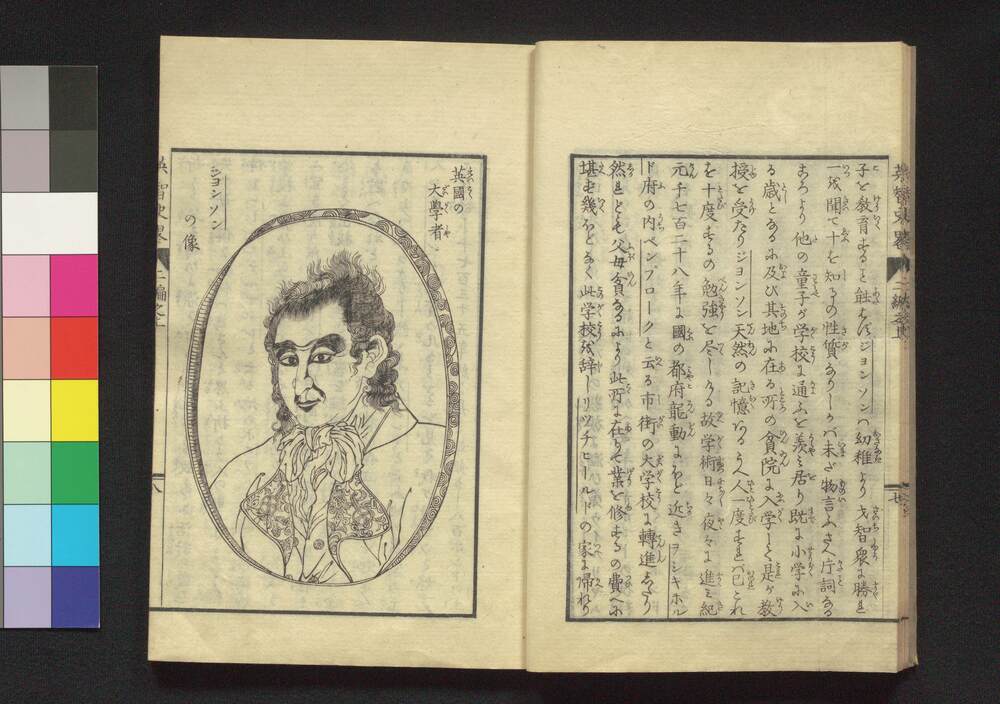 子を教育すると雖もジヨンソンハ幼稚より才智衆に勝れ
一を聞て十を知るの性質ありしかバ未だ物言ふさへ片詞なる
ころより他の童子が学校に通ふを羨み居り既に小学に入
る歳となるに及び其地に在る所の貧院に入学して是が教
授を受たりジヨンソン天然の記憶ハ人一度すれバ已これ
を十度するの勉強を尽しける故学術日々夜々に進み紀
元千七百二十八年に國の都府竜動にほど近きヲシキホル
ド府の内ペンブロークと云る市街の大学校に轉進したり
然れども父母貧なるにより此所に在りて業を修するの費へに
堪ず幾ほどなく此学校を辞しリツチヒールドの家に帰れり
英國の
大學者
ジヨンソン
の像